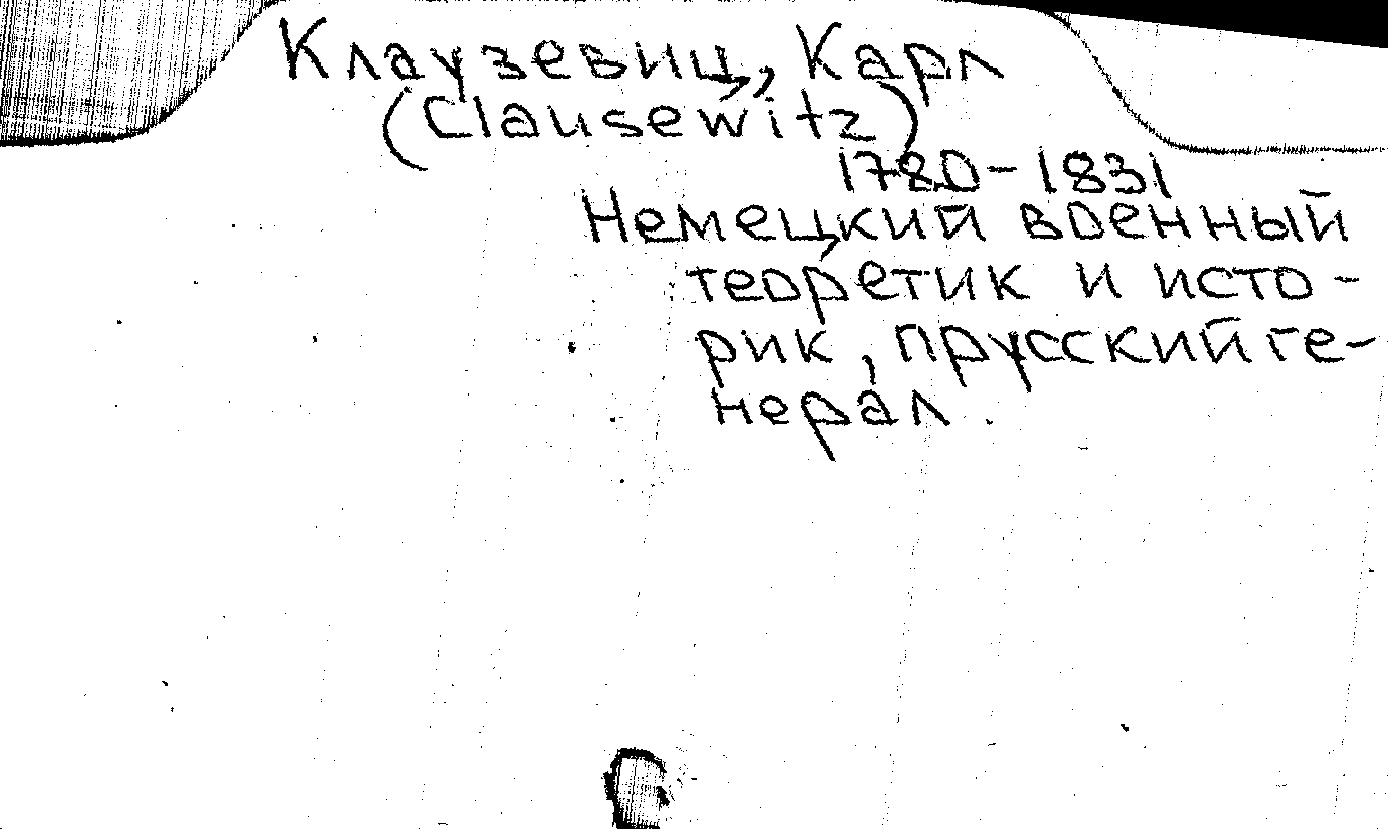 Клаузевиц, Карл
(Clausewitz)
1780-1831
Немецкий военный
теоретик и исто-
рик, прусский ге-
нерал.